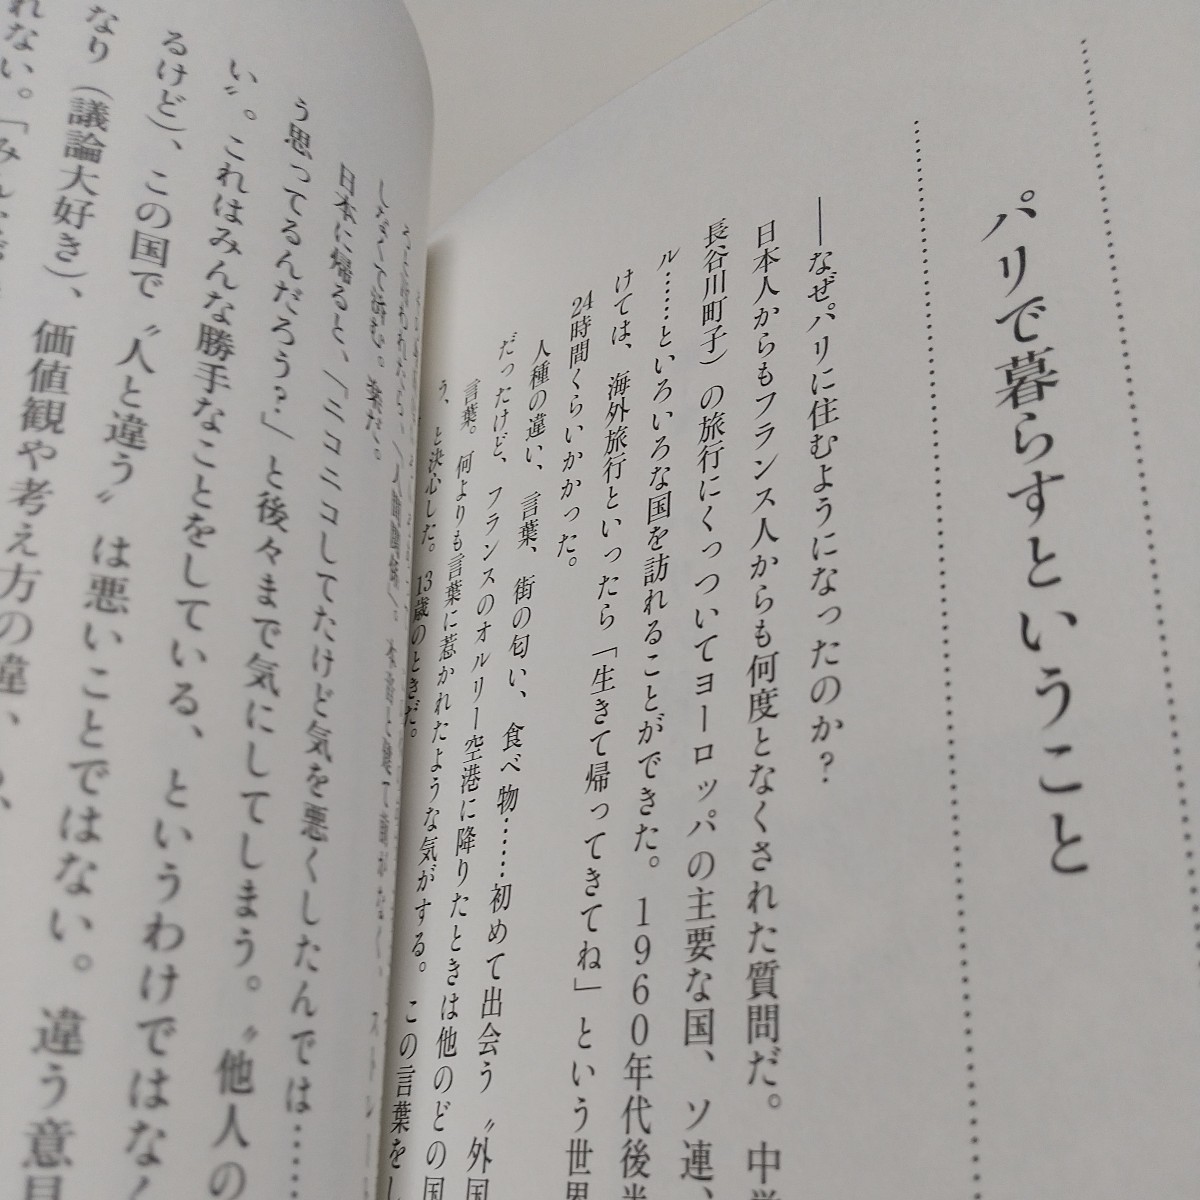 パリで暮らすということ
――なぜパリに住むようになったのか？
日本人からもフランス人からも何度となくされた質問だ。中学
長谷川町子）の旅行にくっついてヨーロッパの主要な国、ソ連、
ル……といろいろな国を訪れることができた。1960年代後半
けては、海外旅行といったら「生きて帰ってきてね」という世界
24時間くらいかかった。
人種の違い、言葉、街の匂い、食べ物……初めて出会う〝外国
だったけど、フランスのオルリー空港に降りたときは他のどの国
言葉。何よりも言葉に惹かれたような気がする。この言葉をし
う、と決心した。13歳のときだ。
しなくて済む。楽だ。
日本に帰ると、「ニコニコしてたけど気を悪くしたんでは……
う思ってるんだろう？」と後々まで気にしてしまう。〝他人の
い〟。これはみんな勝手なことをしている、というわけではなく
るけど）、この国で〝人と違う〟は悪いことではない。違う意見
なり（議論大好き）、価値観や考え方の違い
れない。「みんな